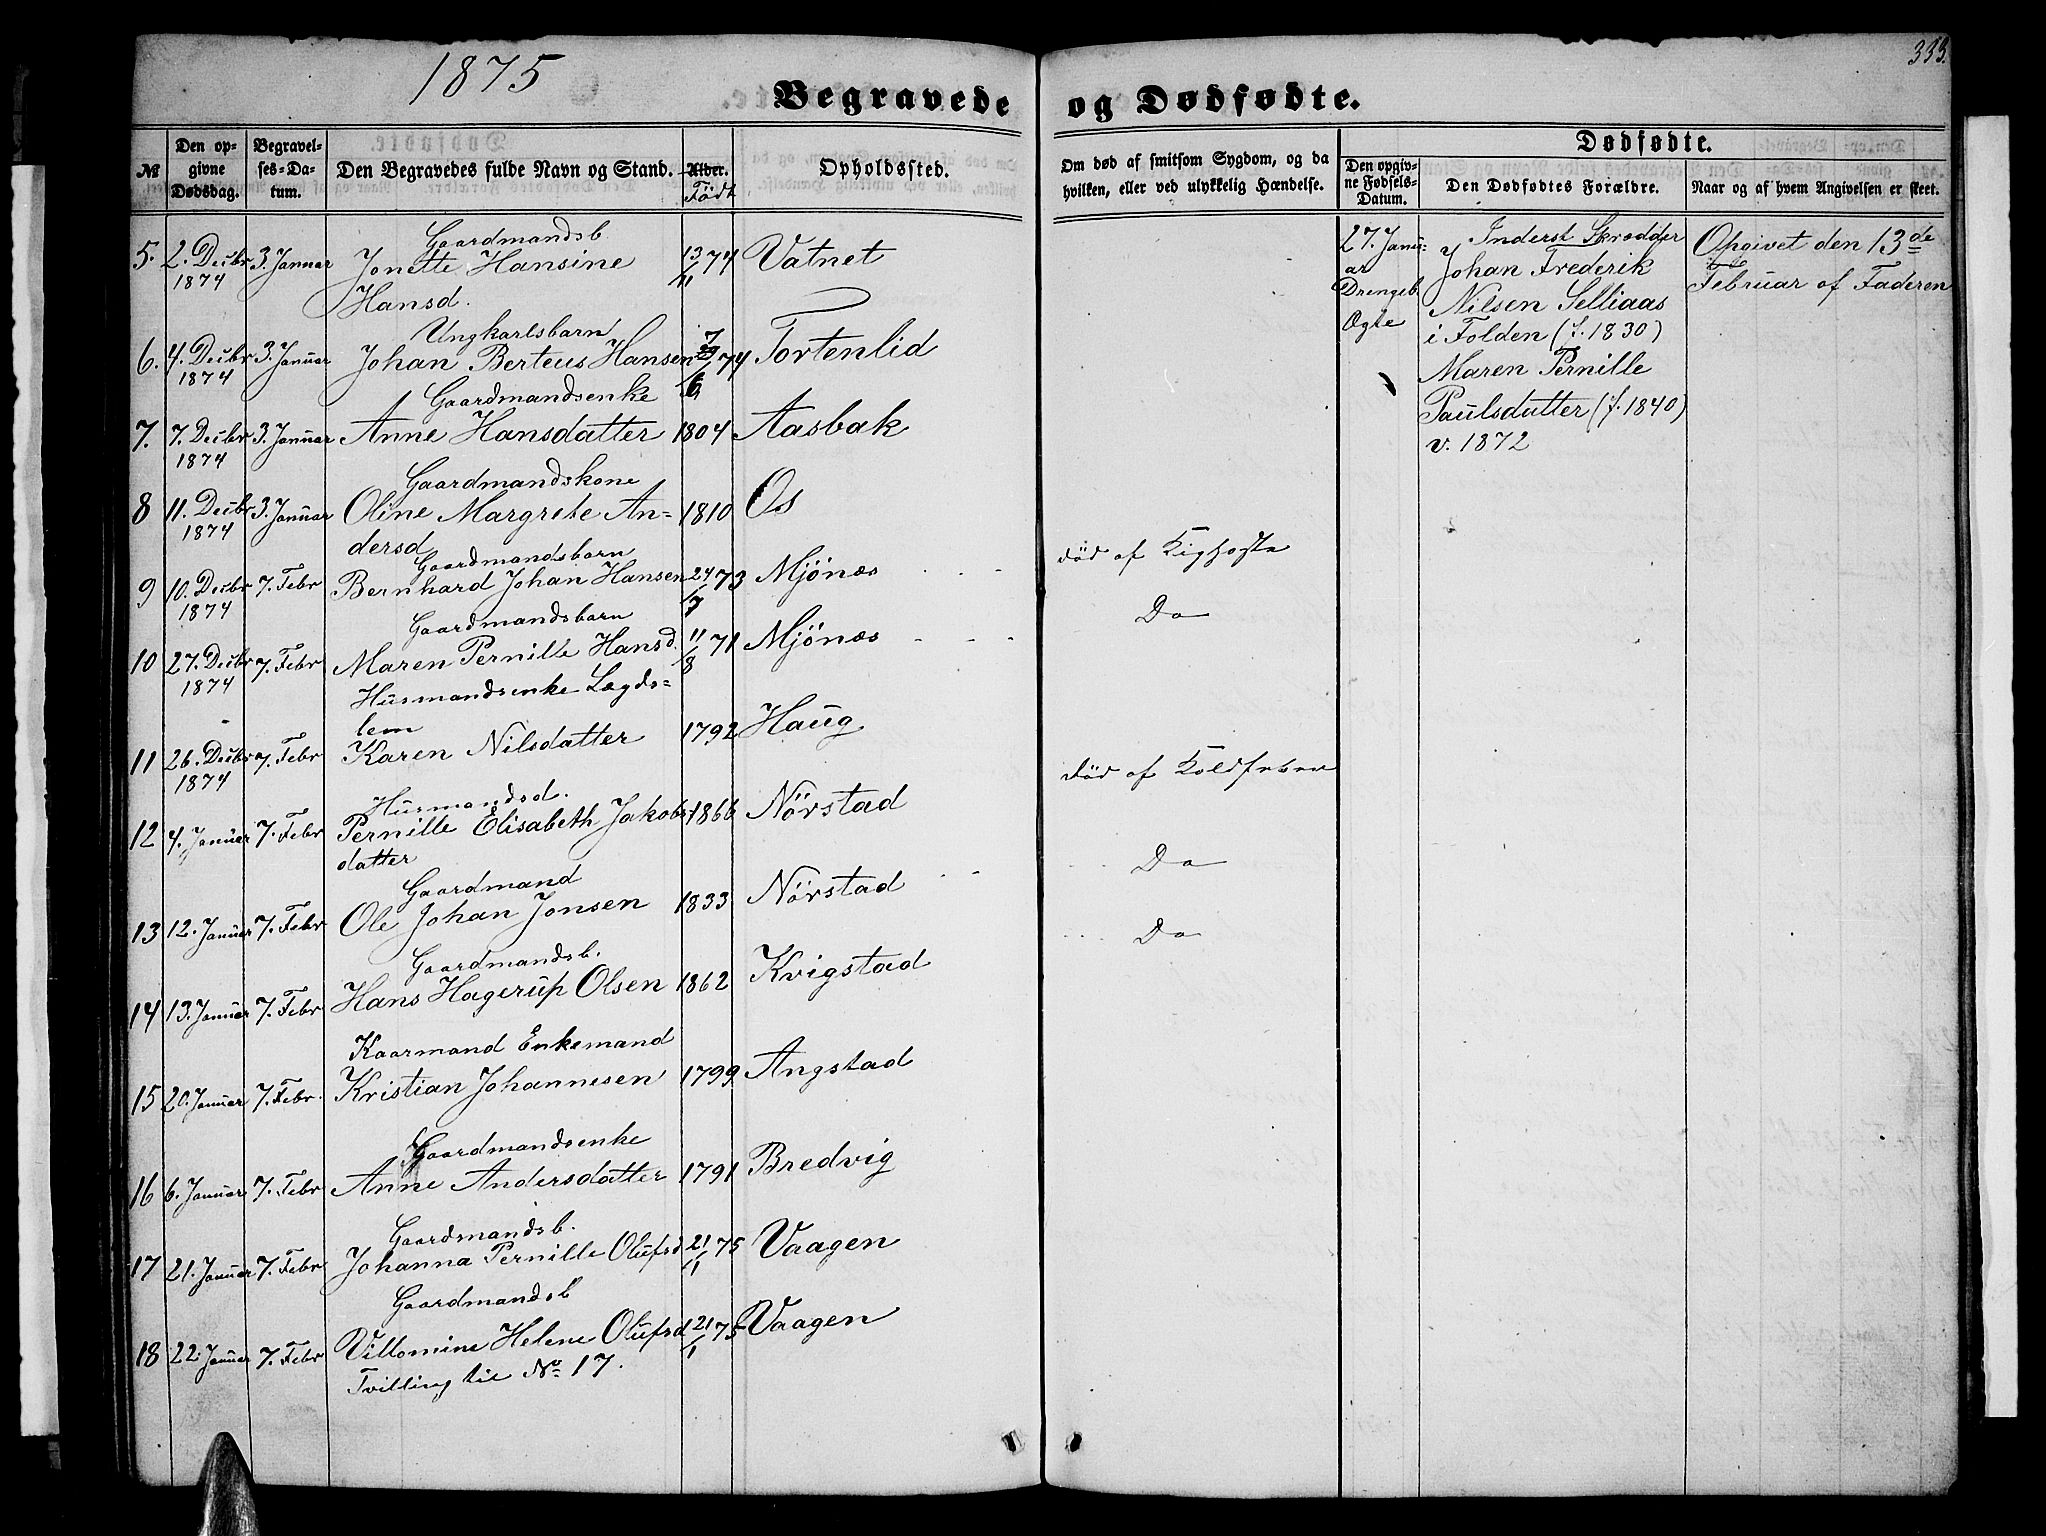 1875
333.
Begravede og Dødfødte.
№
Den op-
givne
Dødsdag.
Begravel-
ses-Da-
tum.
Den Begravedes fulde Navn og Stand.
Alder.
Födt
Opholdssted.
Om død af smitsom Sygdom, og da
hvilken, eller ved ulykkelig Hændelse.
Dødfødte.
Den opgiv-
ne Fødsels-
Datum.
Den Dødfødtes Forældre.
Naar og af hvem Angivelsen er skeet.
Gaardmandsb.
5. 2. Decbr 3. Januar Jonette Hansine 13/11 74 Vatnet
1874
Hansd.
Ungkarlsbarn
6. 4. Decbr 3. Januar Johan Berteus Hansen 74 Tortenlid
1874
Gaardmandsenke
7. 7. Decbr 3. Januar Anne Hansdatter 1804 Aasbak
1874
Gaardmandskone
8 11. Decbr 3. Januar Oline Margrete An- 1810 Os
1874
dersd
Gaardmandsbarn
9 10. Decbr 7. Febr Bernhard Johan Hansen 24/7 73 Mjönæs - - - död af Kighoste
1874
Gaardmandsbarn
10 27. Decbr 7. Febr Maren Pernille Hansd. 11/8 71 Mjönæs - - - Do
1874
Husmandsenke Lægds-
lem
11 26. Decbr 7. Febr Karen Nilsdatter 1792 Haug
1874
Husmandsd.
12 4. Januar 7. Febr Pernille Elisabeth Jakobs- 1866 Nörstad död af Koldfeber
datter
Gaardmand
13 12. Januar 7. Febr Ole Johan Jonsen 1833 Nörstad - - Do
Gaardmandsb.
14 13. Januar 7. Febr Hans Hagerup Olsen 1862 Kvigstad Do
Kaarmand Enkemand
15 20. Januar 7. Febr. Kristian Johannesen 1799 Angstad
Gaardmandsenke
16 6. Januar 7. Febr Anne Andersdatter 1791 Bredvig
Gaardmandsb.
17 21. Januar 7. Febr Johanna Pernille Olufsd 21/1 75 Vaagen
Gaardmandsb
18 22. Januar 7. Febr Villomine Helene Olufsd 21/1 75 Vaagen
Tvilling til No 17.
27. Janu-
ar
Drengeb.
Ægte
Inderst Skrædder
Johan Frederik
Nilsen Selliaas
i Folden (f. 1830)
Maren Pernille
Paulsdatter (f. 1840)
v. 1872
Opgivet den 13de
Februar af Faderen